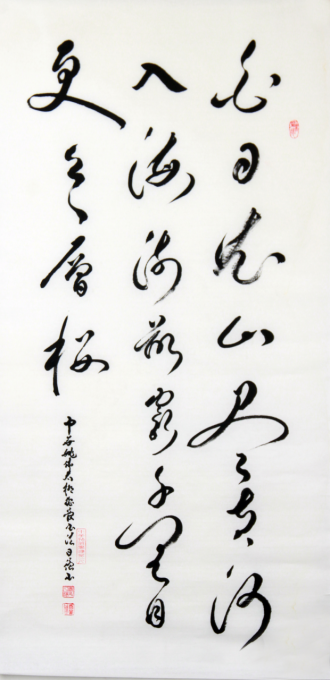 白日依山尽黄河
入海流欲窮千里目
更上一層楼